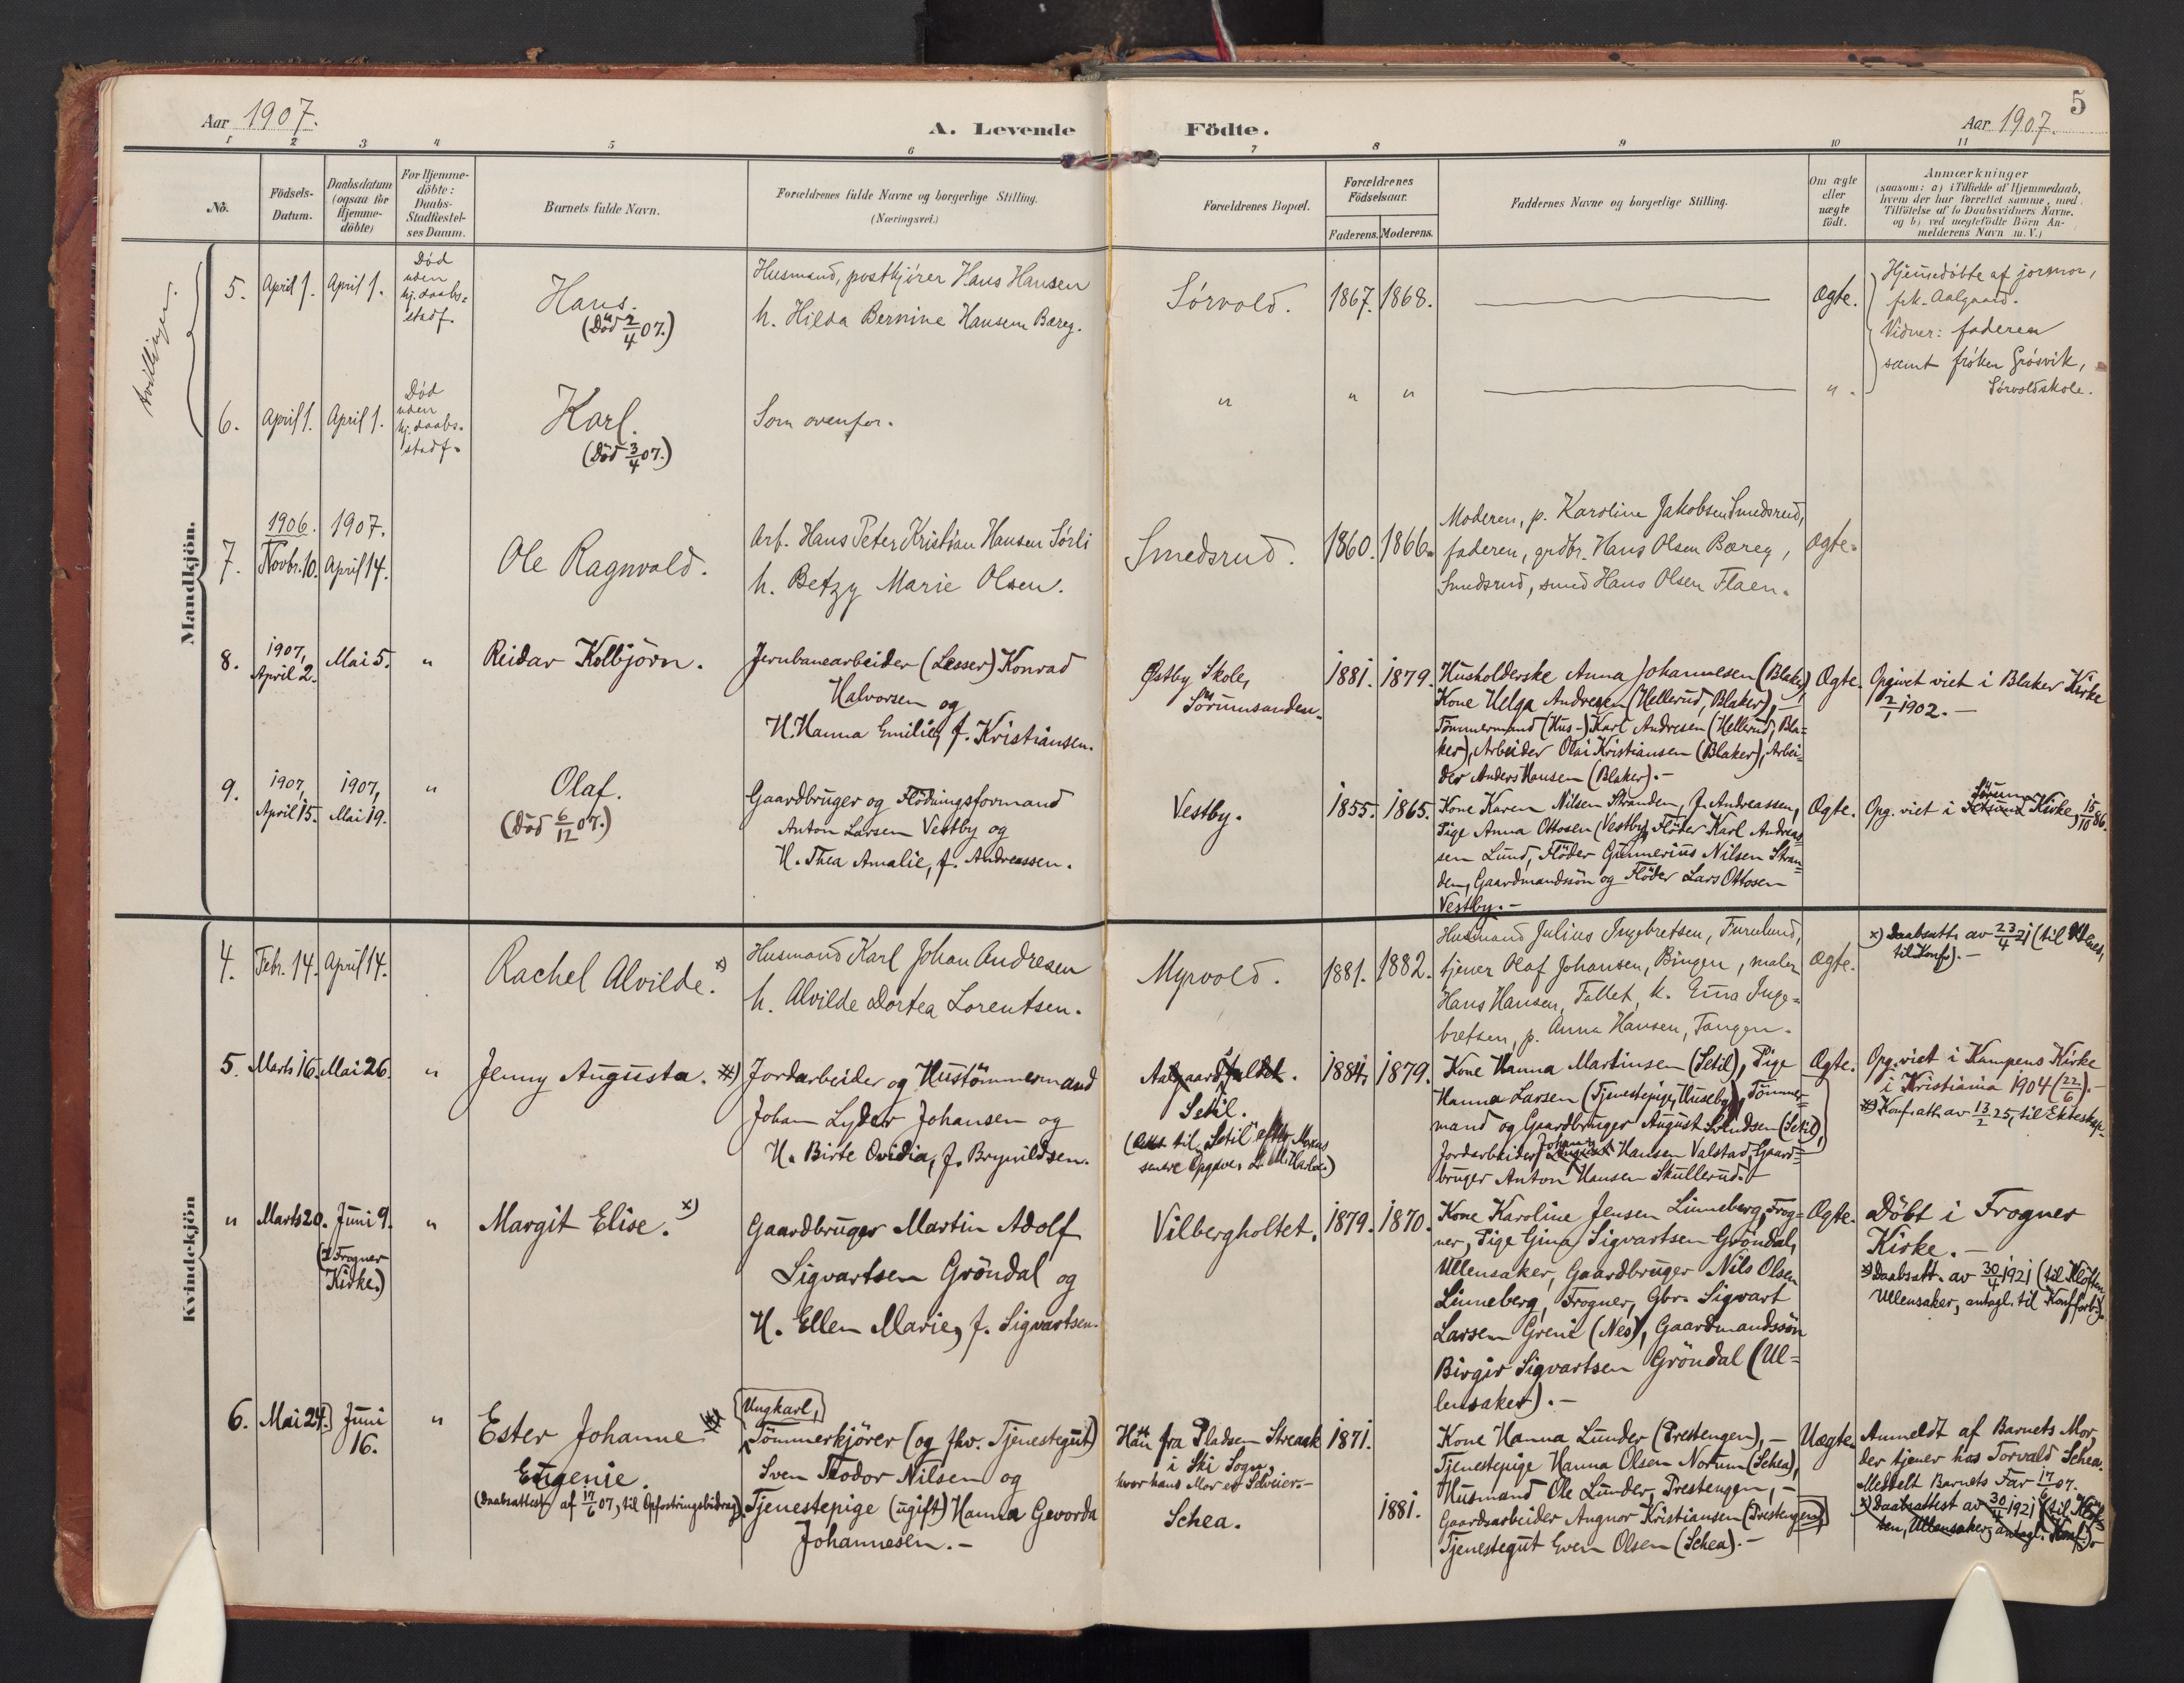 Aar 1907.
A. Levende Födte.
Aar 1907.
5
1 2 3 4 5 6 7 8 9 10 11
No.
Födsels-
Datum.
Daabsdatum
(ogsaa for
Hjemme-
döbte)
For Hjemme-
döbte:
Daabs-
Stadfæstel-
ses Datum.
Barnets fulde Navn.
Forældrenes fulde Navne og borgerlige Stilling.
(Næringsvei.)
Forældrenes Bopæl.
Forældrenes
Födselsaar.
Faderens. Moderens.
Faddernes Navne og borgerlige Stilling.
Om ægte
eller
uægte
födt.
Anmærkninger
(saasom: a) i Tilfælde af Hjemmedaab,
hvem der har forrettet samme, med
Tilföielse af to Daabsvidners Navne,
og b) ved uægtefödte Börn An-
melderens Navn m.V.)
Mandkjön.
tvillinger.
5. April 1. April 1.
Död
uden
hj. daabs-
stadf.
Hans.
(Död 2/4 07.)
Husmand, postkjörer Hans Hansen
h. Hilda Bernine Hansen Bæreg.
Sörvold. 1867. 1868.
Ægte.
Hjemmedöbte af jormor,
frk. Aalgaard.
Vidner: faderen
samt fröken Gräsvik,
Sörvoldskole.
6. April 1. April 1.
Död
uden
hj. daabs-
stadf.
Karl.
(Död 3/4 07.)
Som ovenfor.
" " " ".
7. 1906. Novbr. 10. 1907. April 14.
Ole Ragnvald.
Arb. Hans Peter Kristian Hansen Sörli
h. Betzy Marie Olsen.
Smedsrud. 1860. 1866.
Moderen, p. Karoline Jakobsen Smedsrud,
faderen, grdbr. Hans Olsen Bæreg,
Smedsrud, smed Hans Olsen Flaen.
Ægte.
8. 1907, April 2. Mai 5. "
Reidar Kolbjörn.
Jernbanearbeider (Lesser) Konrad
Halvorsen og
H. Hanna Emilie, f. Kristiansen.
Østby Skole,
Sörumsanden.
1881. 1879.
Husholderske Anna Johannesen (Blaker),
Kone Helga Andresen (Hellerud, Blaker), –
Tömmermand (Hus-) Karl Andresen (Hellerud, Bla=
ker), Arbeider Olai Kristiansen (Blaker), Arbei=
der Anders Hansen (Blaker). –
Ægte.
Opgivet viet i Blaker Kirke
2/1 1902. –
9. 1907, April 15. 1907, Mai 19. "
Olaf.
(Död 6/12 07.)
Gaardbruger og Flödningsformand
Anton Larsen Vestby og
H. Thea Amalie, f. Andreassen.
Vestby. 1855. 1865.
Kone Karen Nilsen Stranden, f. Andreassen,
Pige Anna Ottosen (Vestby), Flöder Karl Andreas=
sen Lund, Flöder Gunnerius Nilsen Stran=
den, Gaardmandssön og Flöder Lars Ottosen
Vestby. –
Ægte.
Opg. viet i Fetsund Sörum Kirke, 15/10 86.
Kvindekjön
4. Febr. 14. April 14.
Rachel Alvilde. x)
Husmand Karl Johan Andresen
h. Alvilde Dortea Lorentsen.
Myrvold. 1881. 1882.
Husmand Julius Ingebretsen, Furulund,
tjener Olaf Johansen, Bingen, maler
Hans Hansen, Fallet, k. Ema Inge=
bretsen, p. Anna Hansen, Tangen.
Ægte.
x) Daabsatt. av 23/4 21 (til
til Konf.). –
5. Marts 16. Mai 26. "
Jenny Augusta. #)
Jordarbeider og Hustömmermand
Johan Lyder Johansen og
H. Birte Ovidia, f. Brynildsen.
Aalgaardfaldet.
Setil.
(Rett til "Setil" efter Mors
senere Opgave,
1884. 1879.
Kone Hanna Martinsen (Setil), Pige
Hanna Larsen (Tjenestepige, Huseby), Tömmer=
mand og Gaardbruger August Svendsen (Setil),
Jordarbeider Johan Hansen Valstad, Gaard=
bruger Anton Hansen Skullerud. –
Ægte.
Opg. viet i Kampens Kirke
i Kristiania 1904 (22/6). –
#) Konf. att. av 13/2 25, til Ekteskap.
" Marts 20. Juni 9. "
(I Frogner
Kirke.)
Margit Elise. x)
Gaardbruger Martin Adolf
Sigvartsen Gröndal og
H. Ellen Marie, f. Sigvartsen.
Vilbergholtet. 1879. 1870.
Kone Karoline Jensen Linneberg, Frog=
ner, Pige Gina Sigvartsen Gröndal,
Ullensaker, Gaardbruger Nils Olsen
Linneberg, Frogner, Gbr. Sigvart
Larsen Greni (Nes), Gaardmandssön
Birger Sigvartsen Gröndal (Ul=
lensaker). –
Ægte.
Döbt i Frogner
Kirke. –
x) Daabsatt. av 30/4 1921 (til Klöften,
Ullensaker, antagl. til Konf. forb.).
6. Mai 24. Juni 16. "
Ester Johanne
Eugenie.
(Daabsattest af 17/6 07, til Opfostringsbidrag).
Ungkarl,
Tömmerkjörer (og fhv. Tjenestegut)
Sven Teodor Nilsen og
Tjenestepige (ugift) Hanna Gevorda
Johannesen. –
Han fra Pladsen Streaak
i Ski Sogn,
hvor hans Mor er Selveier. –
Schea.
1871.
1881.
Kone Hanna Lunder (Prestengen), –
Tjenestepige Hanna Olsen Norum (Schea),
Husmand Ole Lunder, Prestengen, –
Gaardsarbeider Augnor Kristiansen (Prestengen),
Tjenestegut Even Olsen (Schea). –
Uægte.
Anmeldt af Barnets Mor,
der tjener hos Torvald Schea.
Meddelt Barnets Far 17/6 07.
x) Daabsattest av 30/4 1921 (til Klöf=
ten, Ullensaker, antagl. Konf.).